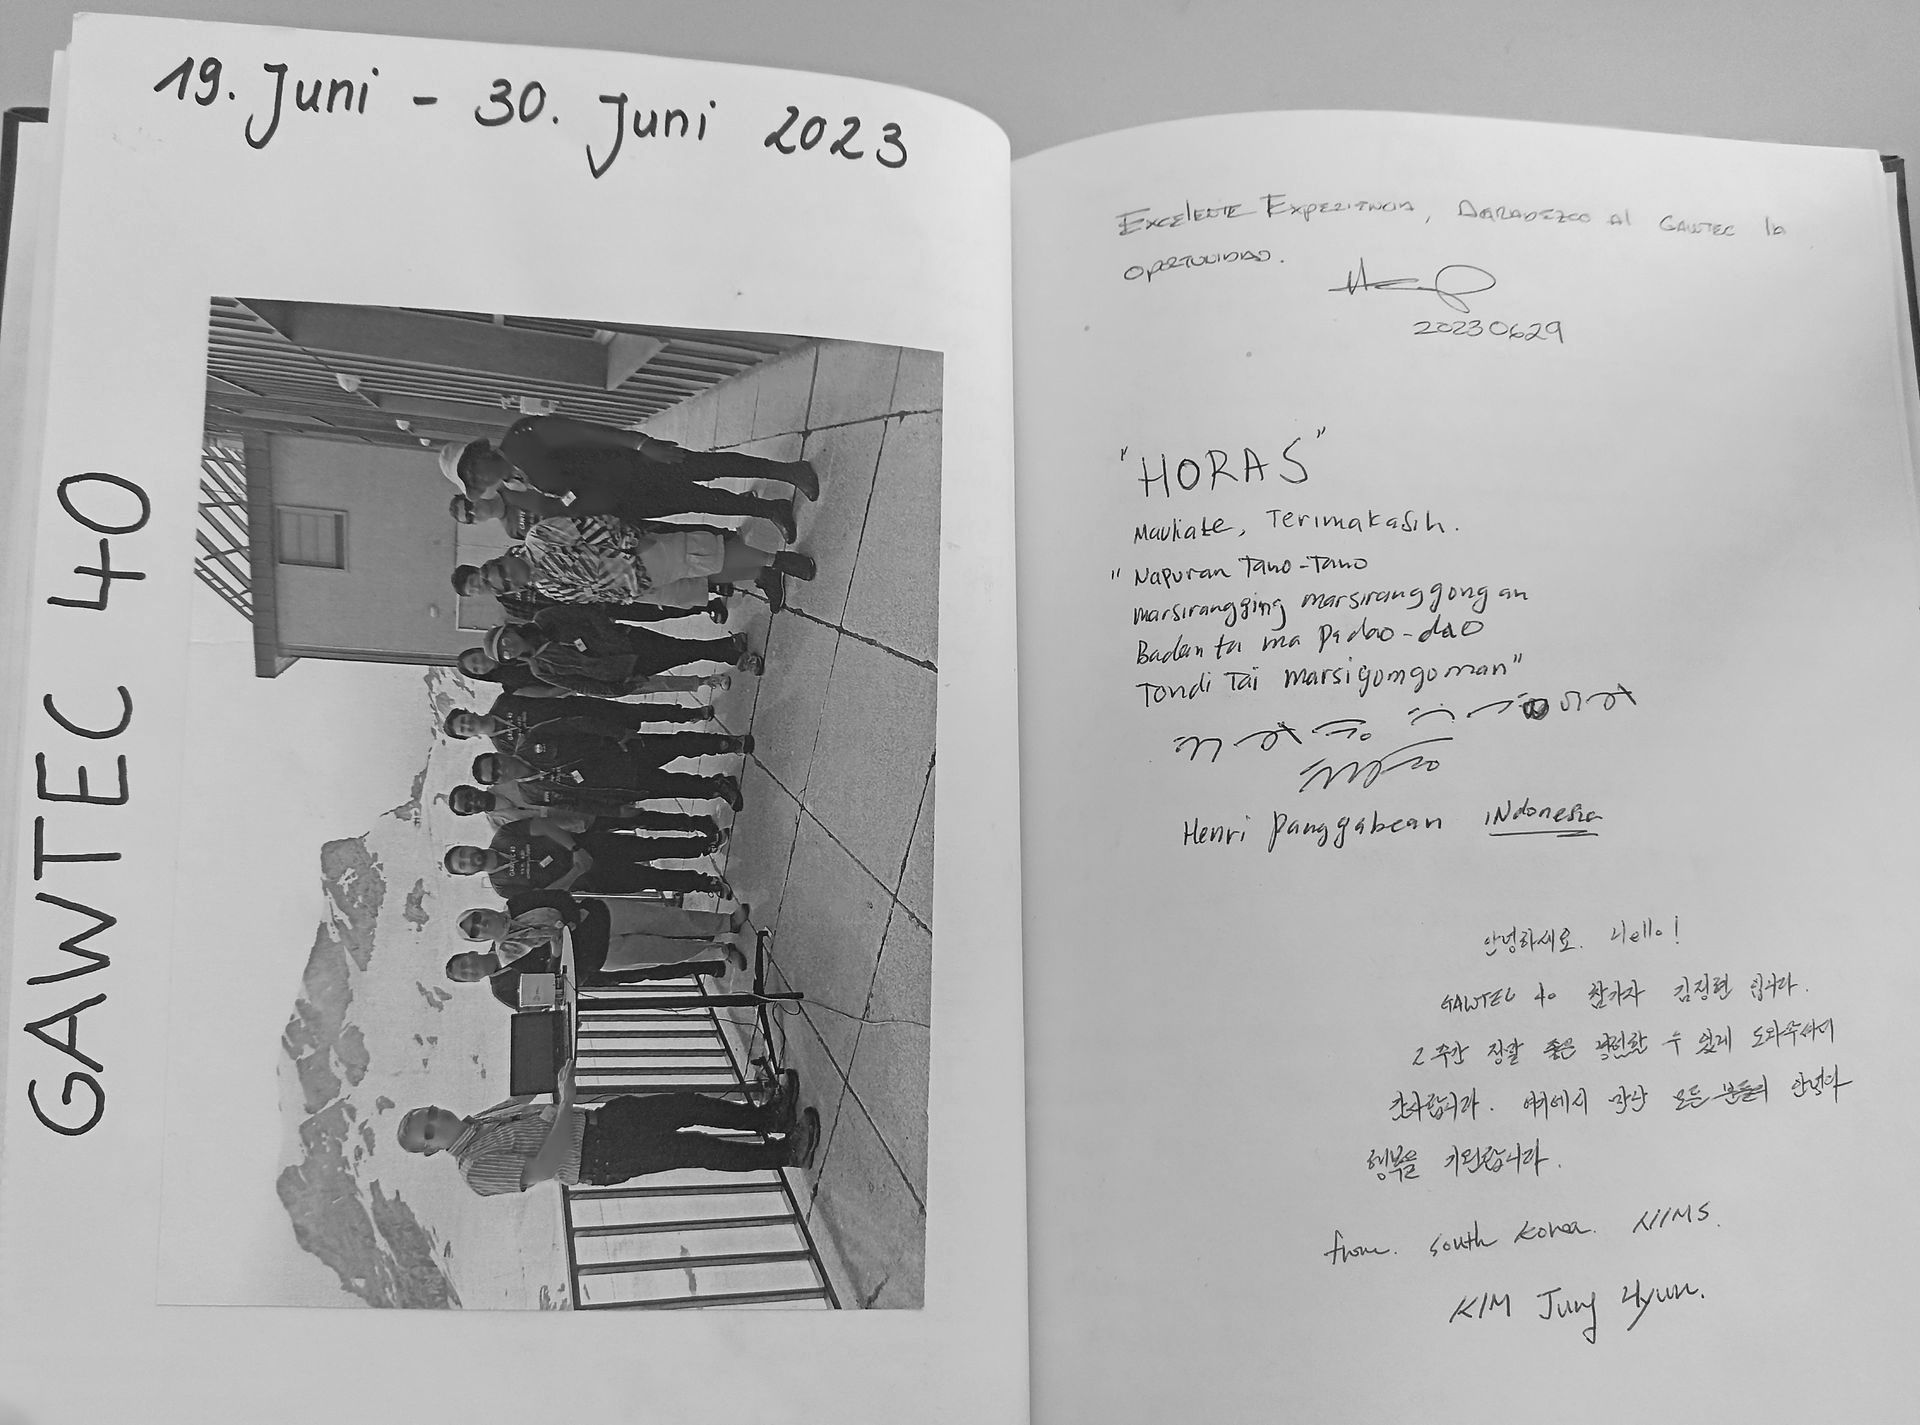 19. Juni - 30. Juni 2023
GAWTEC 40
Excelente Experiencia, Agradezco al GAWTEC la
oportunidad.
20230629
"HORAS"
Mauliate, Terimakasih.
"Napuran Tano-Tano
marsirangging marsiranggongan
Badan ta ma padao-dao
Tondi Tai marsigomgoman"
Henri Panggabean INdonesia
안녕하세요. Hello!
GAWTEC 40 참가자 김정현 입니다.
2주간 정말 좋은 경험할 수 있게 도와주셔서
감사합니다. 여기에서 만난 모든 분들의 안녕과
행복을 기원합니다.
from. South Korea. NIMS.
KIM Jung Hyun.